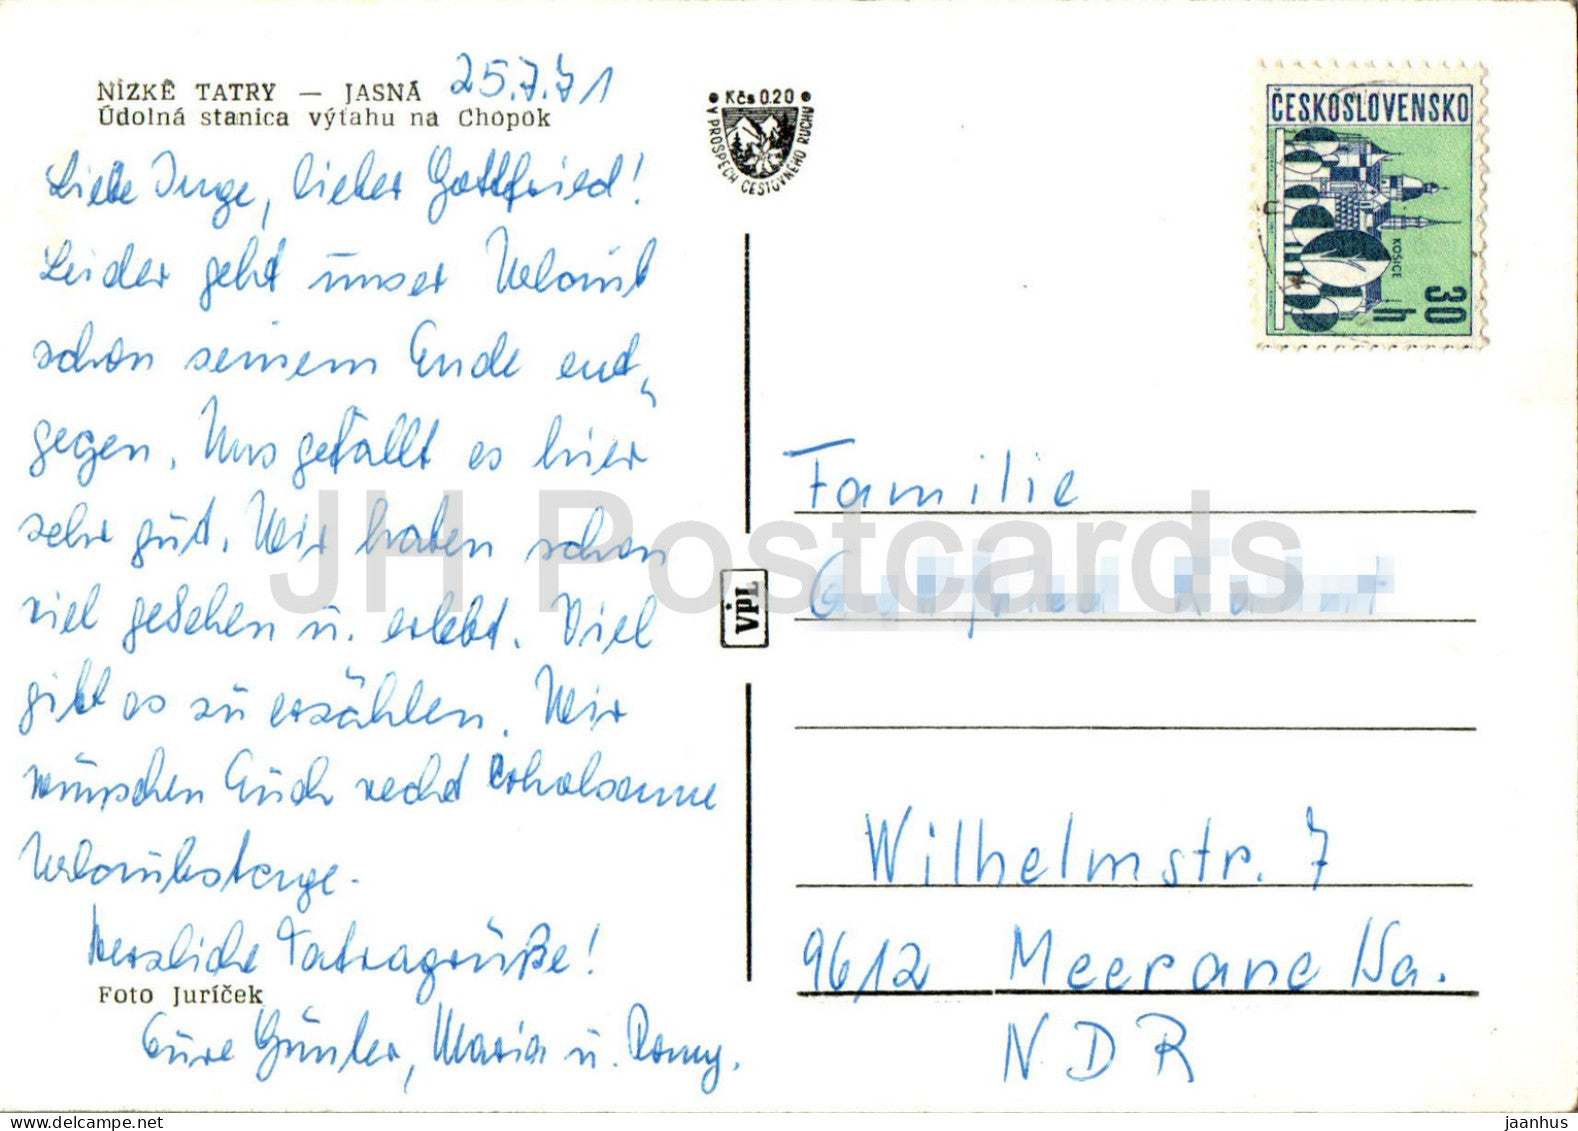 NÍZKÉ TATRY — JASNÁ 25.7.71
Údolná stanica výťahu na Chopok
Liebe Inge, lieber Gottfried!
Leider geht unser Urlaub
schon seinem Ende ent-
gegen. Uns gefällt es hier
sehr gut. Wir haben schon
viel gesehen u. erlebt. Viel
gibt es zu erzählen. Wir
wünschen Euch recht erholsame
Urlaubstage.
Herzliche Tatragrüße!
Foto Juríček
Eure Günter, Maria u. Romy.
Kčs 0.20
V PROSPECH CESTOVNÉHO RUCHU
VPL
ČESKOSLOVENSKO
KOŠICE
30 h
Familie
Wilhelmstr. 7
9612 Meerane /Sa.
NDR
JH Postcards
jaanhus
delcampe.net